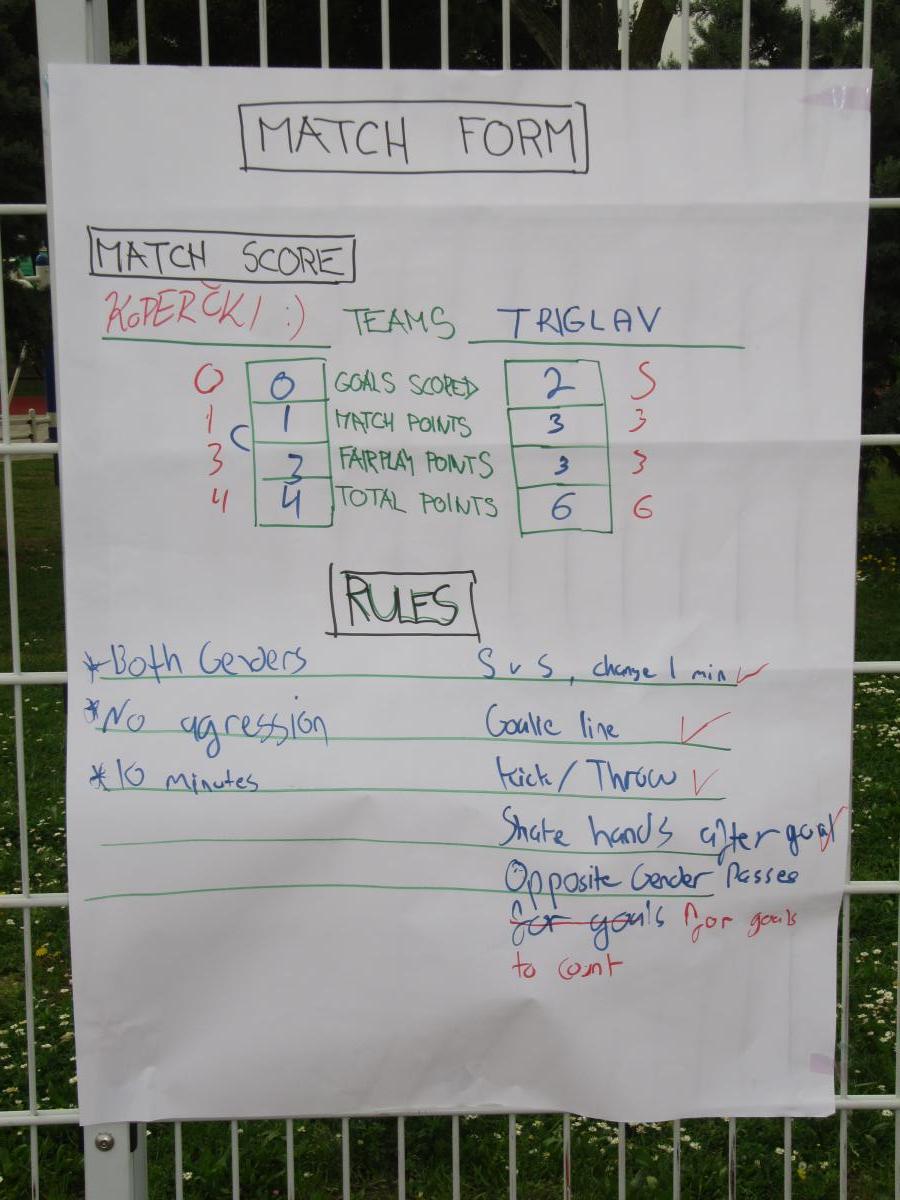 MATCH FORM
MATCH SCORE
KOPERČKI :) TEAMS TRIGLAV
0 0 GOALS SCORED 2 5
1 1 MATCH POINTS 3 3
3 3 FAIRPLAY POINTS 3 3
4 4 TOTAL POINTS 6 6
RULES
*Both Genders 5 v 5, change 1 min ✓
*No agression Goalie line ✓
*10 minutes Kick/Throw ✓
Shake hands after goal ✓
Opposite Gender Passes
for goals for goals
to count